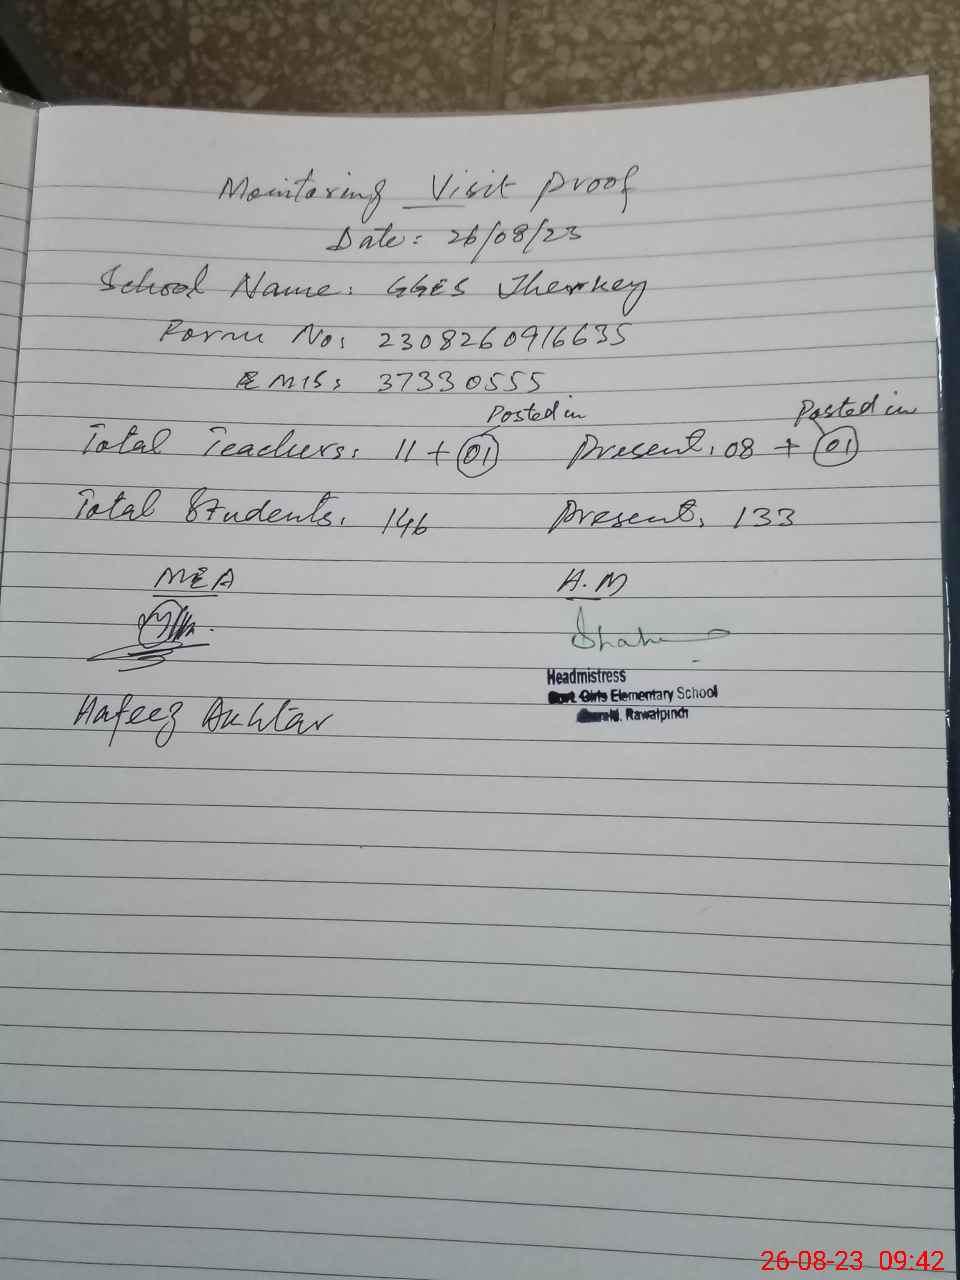 Monitoring Visit Proof
Date: 26/08/23
School Name: GGES
Form No: 2308260916635
EMIS: 37330555
Posted in Posted in
Total Teachers: 11 + 01 Present: 08 + 01
Total Students: 146 Present: 133
MEA H.M
Headmistress
Govt. Girls Elementary School
Rawalpindi
Hafeez Akhtar
26-08-23 09:42